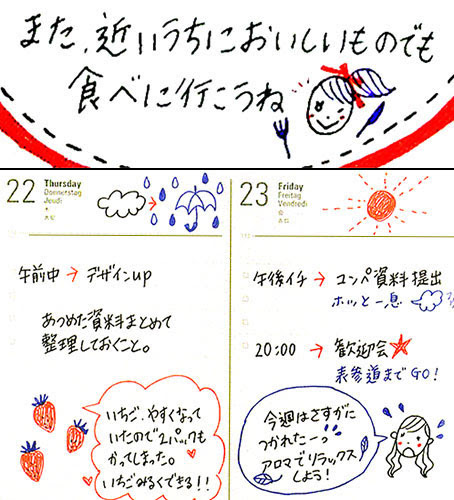 また、近いうちにおいしいものでも
食べに行こうね
22 Thursday
Donnerstag
Jeudi
午前中→デザインup
あつめた資料まとめて
整理しておくこと。
いちご、やすくなって
いたので2パックも
かってしまった。
いちごみるくできる!!
23 Friday
Freitag
Vendredi
午後イチ→コンペ資料提出
ホッと一息
20:00→歓迎会
表参道までGO!
今週はさすがに
つかれたーっ
アロマでリラックス
しよう!